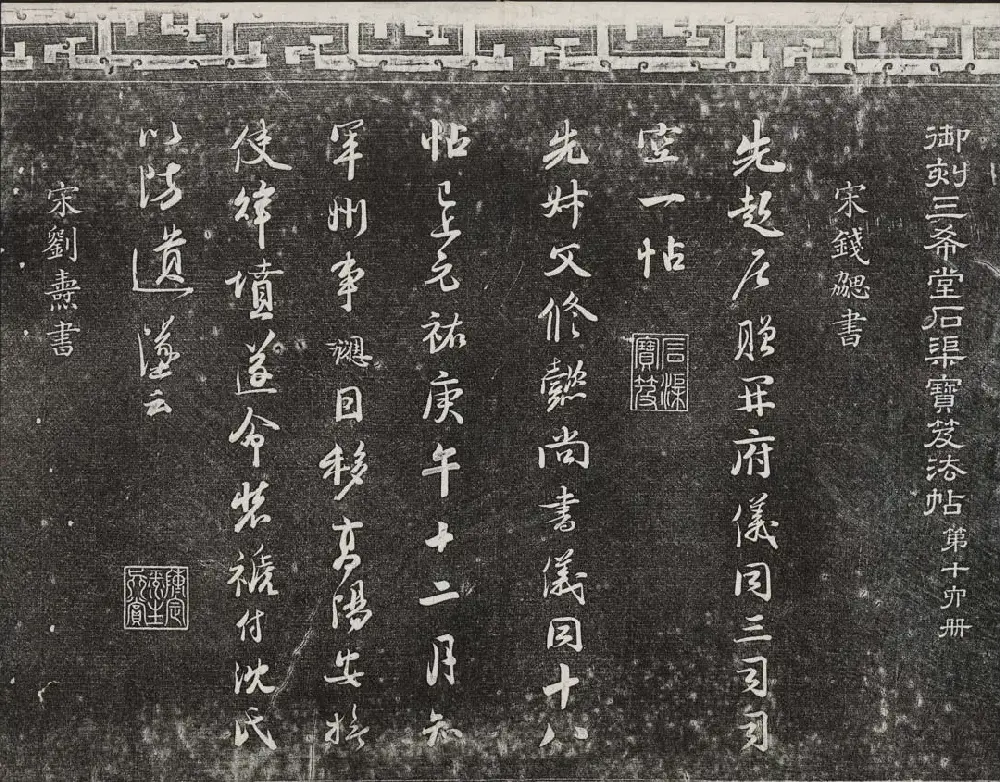 御刻三希堂石渠寶笈法帖 第十六册
宋錢勰書
先起居贈開府儀同三司司
空一帖
石渠寶笈
先姊父修懿尚書儀同十八
帖已上元祐庚午十二月知
軍州事勰因移高陽安撫
使拜墳遂令裝褫付沈氏
以防遺墜云
宋劉燾書